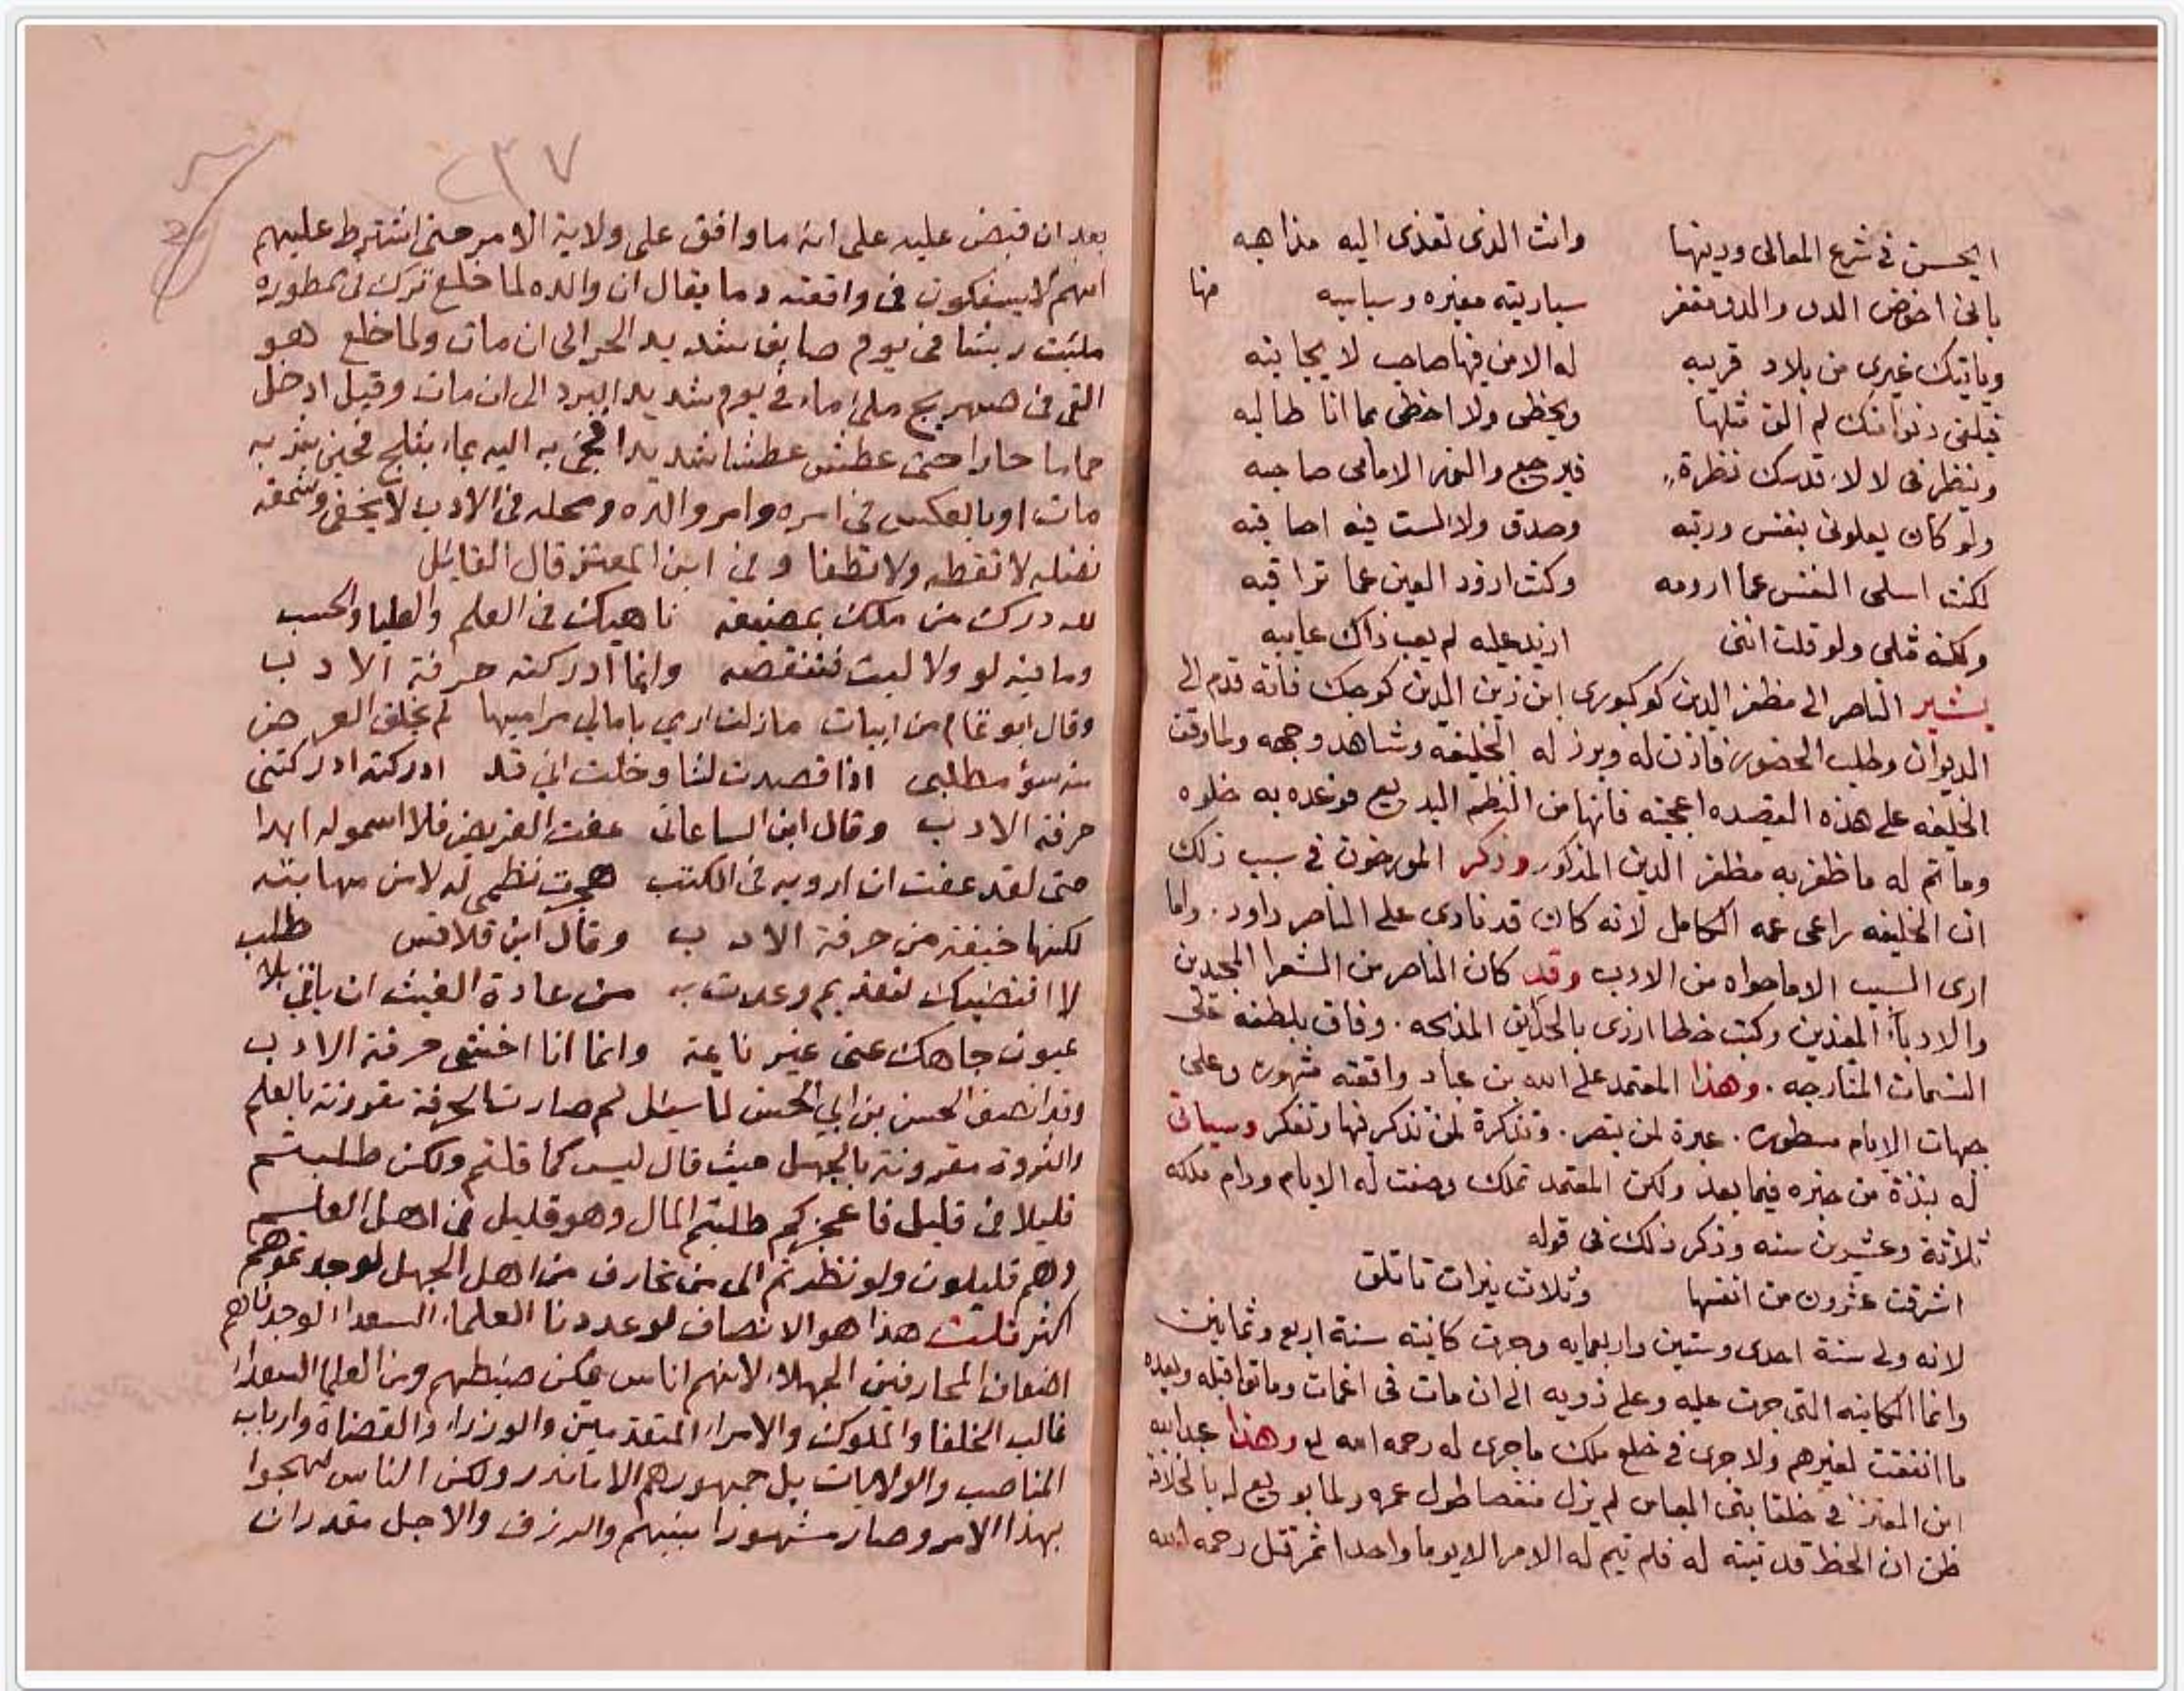 ايحسن في شرع المعالى ودينها وانت الذى تعذى اليه مذاهبه
بانى اخوض الدو والدو مقفر سباريته مغبره وسباسبه منها
وياتيك غيرى من بلاد قريبه له الامن فيها صاحب لا يجانبه
فيلقى دنوا منك لم الق مثلها ويحظى ولا احظى بما انا طالبه
وينظر فى لالاء قدسك نظرة فيرجع والنور الامامى صاحبه
ولو كان يعلونى بنفس ورتبه وصدق ولا لست فيه اصاقبه
لكنت اسلى النفس عما ارومه وكنت اذود العين عما تراقبه
ولكنه مثلى ولو قلت اننى ازيد عليه لم يعب ذاك عايبه
يشير الناصر الى مظفر الدين كوكبورى ابن زين الدين كوجك فانه قدم الى
الديوان وطلب الحضور فاذن له وبرز له الخليفه وشاهد وجهه ولما وقف
الخليفه على هذه القصيده اعجبته فانها من النظم البديع فوعده به خلوه
وما تم له ما ظفر به مظفر الدين المذكور وذكر المورخون فى سبب ذلك
ان الخليفه راعى عمه الكامل لانه كان قد نادى على الناصر داود. وما
ارى السبب الا ما حواه من الادب وقد كان الناصر من الشعرا المجيدين
والادباء المفذين وكتب خطا ازرى بالحدايق المذبحه. وفاق بلطفه على
النسمات المتارجه. وهذا المعتمد على الله بن عباد واقعته مشهوره وعلى
جبهات الايام مسطوره. عبرة لمن تبصر. وتذكرة لمن تذكر فيها وتفكر وسياتى
له نبذة من خبره فيما بعد ولكن المعتمد تملك وصفت له الايام ودام ملكه
ثلاثة وعشرين سنه وذكر ذلك فى قوله
اشرقت عشرون من انفسها وثلاث نيرات تاتلق
لانه ولى سنة احدى وستين واربعمايه وجرت كاينته سنة اربع وثمانين
وانما الكاينه التى جرت عليه وعلى ذويه الى ان مات فى اغمات وما قبله وبعده
ما اتفقت لغيرهم ولا جرى فى خلع ملك ما جرى له رحمه الله تع وهذا عبد الله
ابن المعتز فى خلفا بنى العباس لم يزل منغصا طول عمره ولما بويع له بالخلافة
ظن ان الحظ قد تنبه له فلم يتم له الامر الا يوما واحدا ثم قتل رحمه الله
٢٣٧
بعد ان قبض عليه على انه ما وافق على ولاية الامر حتى اشترط عليهم
انهم لا يسفكون فى واقعته دما يقال ان والده لما خلع ترك فى مطوره
مليت ريشا فى يوم صايف شديد الحر الى ان مات ولما خلع هو
القى فى صهريج ملئ ماء فى يوم شديد البرد الى ان مات وقيل ادخل
حماما حارا حتى عطش عطشا شديدا فجئ به اليه بماء بثلج فحين شربه
مات او بالعكس فى امره وامر والده ومحله فى الادب لا يخفى وشمعة
فضله لا تقط ولا تطفا وفى ابن المعتز قال القايل
لله درك من ملك بمضيعه ناهيك فى العلم والعليا والحسب
وما فيه لو ولا ليت فتنقصه وانما ادركته حرفة الادب
وقال ابو تمام من ابيات ما زلت ارمي بامالي مراميها لم يخلق العرض
منى سؤ مطلبى اذا قصدت لشاو خلت اني قد ادركته ادركتنى
حرفة الادب وقال ابن الساعاتى عفت القريض فلا اسمو له ابدا
حتى لقد عفت ان ارويه فى الكتب هجرت نظمى له لا من مهابته
لكنها خيفة من حرفة الادب وقال ابن قلاقس
لا اقتضيك لتقديم وعدت به من عادة الغيث ان ياتى بلا طلب
عيون جاهك عنى غير نايمة وانما انا اخشى حرفة الادب
وقد انصف الحسن بن ابي الحسن لما سئل لم صارت الحرفة مقرونة بالعلم
والثروة مقرونة بالجهل حيث قال ليس كما قلتم ولكن طلبتم
قليلا فى قليل فاعجزكم طلبتم المال وهو قليل فى اهل العلم
وهم قليلون ولو نظرتم الى من تحارف من اهل الجهل لوجدتموهم
اكثر قلت هذا هو الانصاف لو عددنا العلماء السعدا لوجدناهم
اضعاف المحارفين الجهلاء لانهم اناس يمكن ضبطهم ومن العلما السعداء
غالب الخلفا والملوك والامراء المتقدمين والوزراء والقضاة وارباب
المناصب والولايات بل جمهورهم الا ما ندر ولكن الناس لهجوا
بهذا الامر وصار مشهورا بينهم والرزق والاجل مقدران